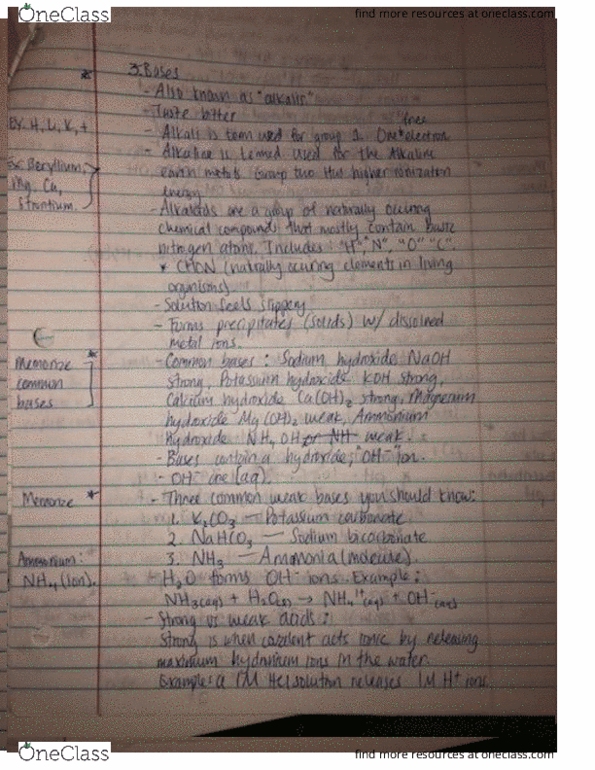 OneClass
find more resources at oneclass.com
* 3. Bases
- Also known as "alkalis"
- Taste bitter
Ex. H, Li, K, +
free
- Alkali is term used for group 1. One electron
- Alkaline is termed used for the Alkaline
Ex: Beryllium,
earth metals. Group two Has higher ionization
Mg, Ca,
energy
Strontium.
- Alkaloids are a group of naturally occuring
chemical compounds that mostly contain basic
nitrogen atoms. Includes "H", "N", "O" "C".
* CHON (naturally occuring elements in living
organisms)
- Solution feels slippery
- Forms precipitates (solids) w/ dissolved
metal ions.
Memorize *
common
bases
- Common bases: Sodium hydroxide NaOH
strong, Potassium hydroxide KOH strong,
Calcium hydroxide Ca(OH)2 strong, Magnesium
hydroxide Mg(OH)2 weak, Ammonium
hydroxide NH4OH or NH weak.
- Bases contain a hydroxide, "OH-" ion.
- OH- (aq).
Memorize *
- Three common weak bases you should know:
1. K2CO3 — Potassium carbonate
2. NaHCO3 — Sodium bicarbonate
Ammonium:
3. NH3 — Ammonia (molecule).
NH4 (Ion).
H2O forms OH- ions. Example:
NH3(aq) + H2O(l) → NH4 1+(aq) + OH-(aq)
- Strong vs weak acids:
Strong is when covalent acts ionic by releasing
maximum hydronium ions in the water.
Example: a 1M HCl solution releases 1M H+ ions.
OneClass
find more resources at oneclass.com